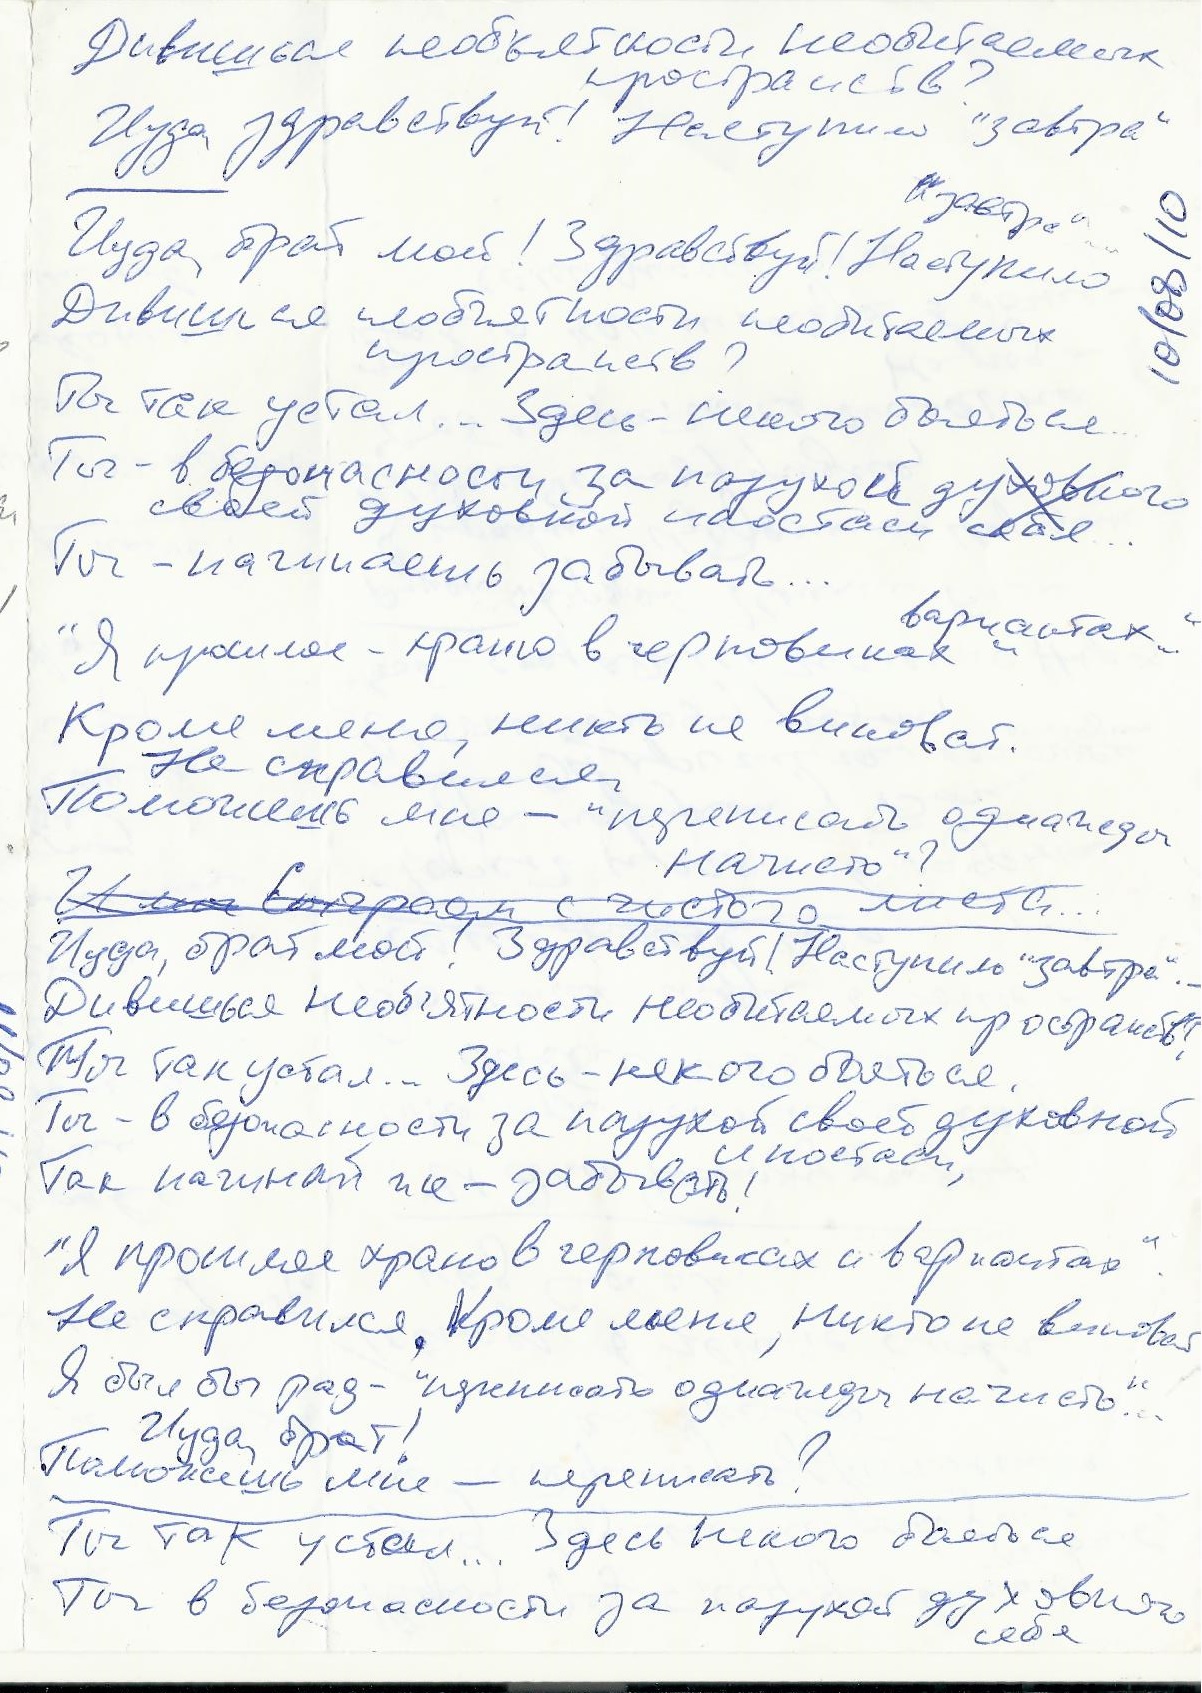 Дивишься необъятности необитаемых
пространств?
Иуда, здравствуй! Наступило "завтра"
"завтра"...
Иуда, брат мой! Здравствуй! Наступило
10/08/10
Дивишься необъятности необитаемых
пространств?
Ты так устал... Здесь - некого бояться...
Ты - в безопасности за пазухой духовного
своей духовной ипостаси себя...
Ты - начинаешь забывать...
вариантах..."
"Я прошлое - храню в черновиках и
Кроме меня, никто не виноват.
Не справился,
Поможешь мне - "переписать однажды
начисто"?
с чистого листа...
Иуда, брат мой! Здравствуй! Наступило "завтра"...
Дивишься необъятности необитаемых пространств?
Ты так устал... Здесь - некого бояться.
Ты - в безопасности за пазухой своей духовной
ипостаси,
Так начинай же - забывать!
"Я прошлое храню в черновиках и вариантах".
Не справился. Кроме меня, никто не виноват
Я был бы рад - "переписать однажды начисто"...
Иуда, брат!
Поможешь мне - переписать?
Ты так устал... Здесь некого бояться
Ты в безопасности за пазухой духовного
себя